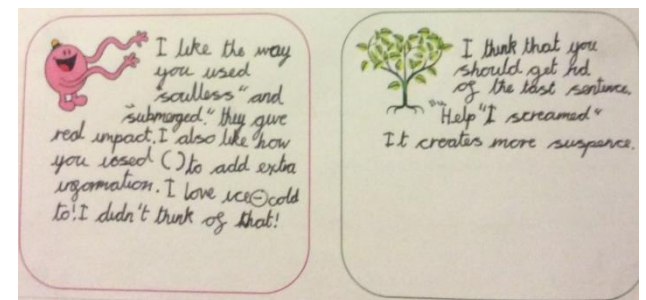 I like the way
you used
"soulless" and
"submerged." they give
real impact. I also like how
you uosed ( ) to add extra
ingormation. I love ice-cold
to! I didn't think of that!
I think that you
should get rid
of the last sentence.
"Help "I screamed"
It creates more suspence.